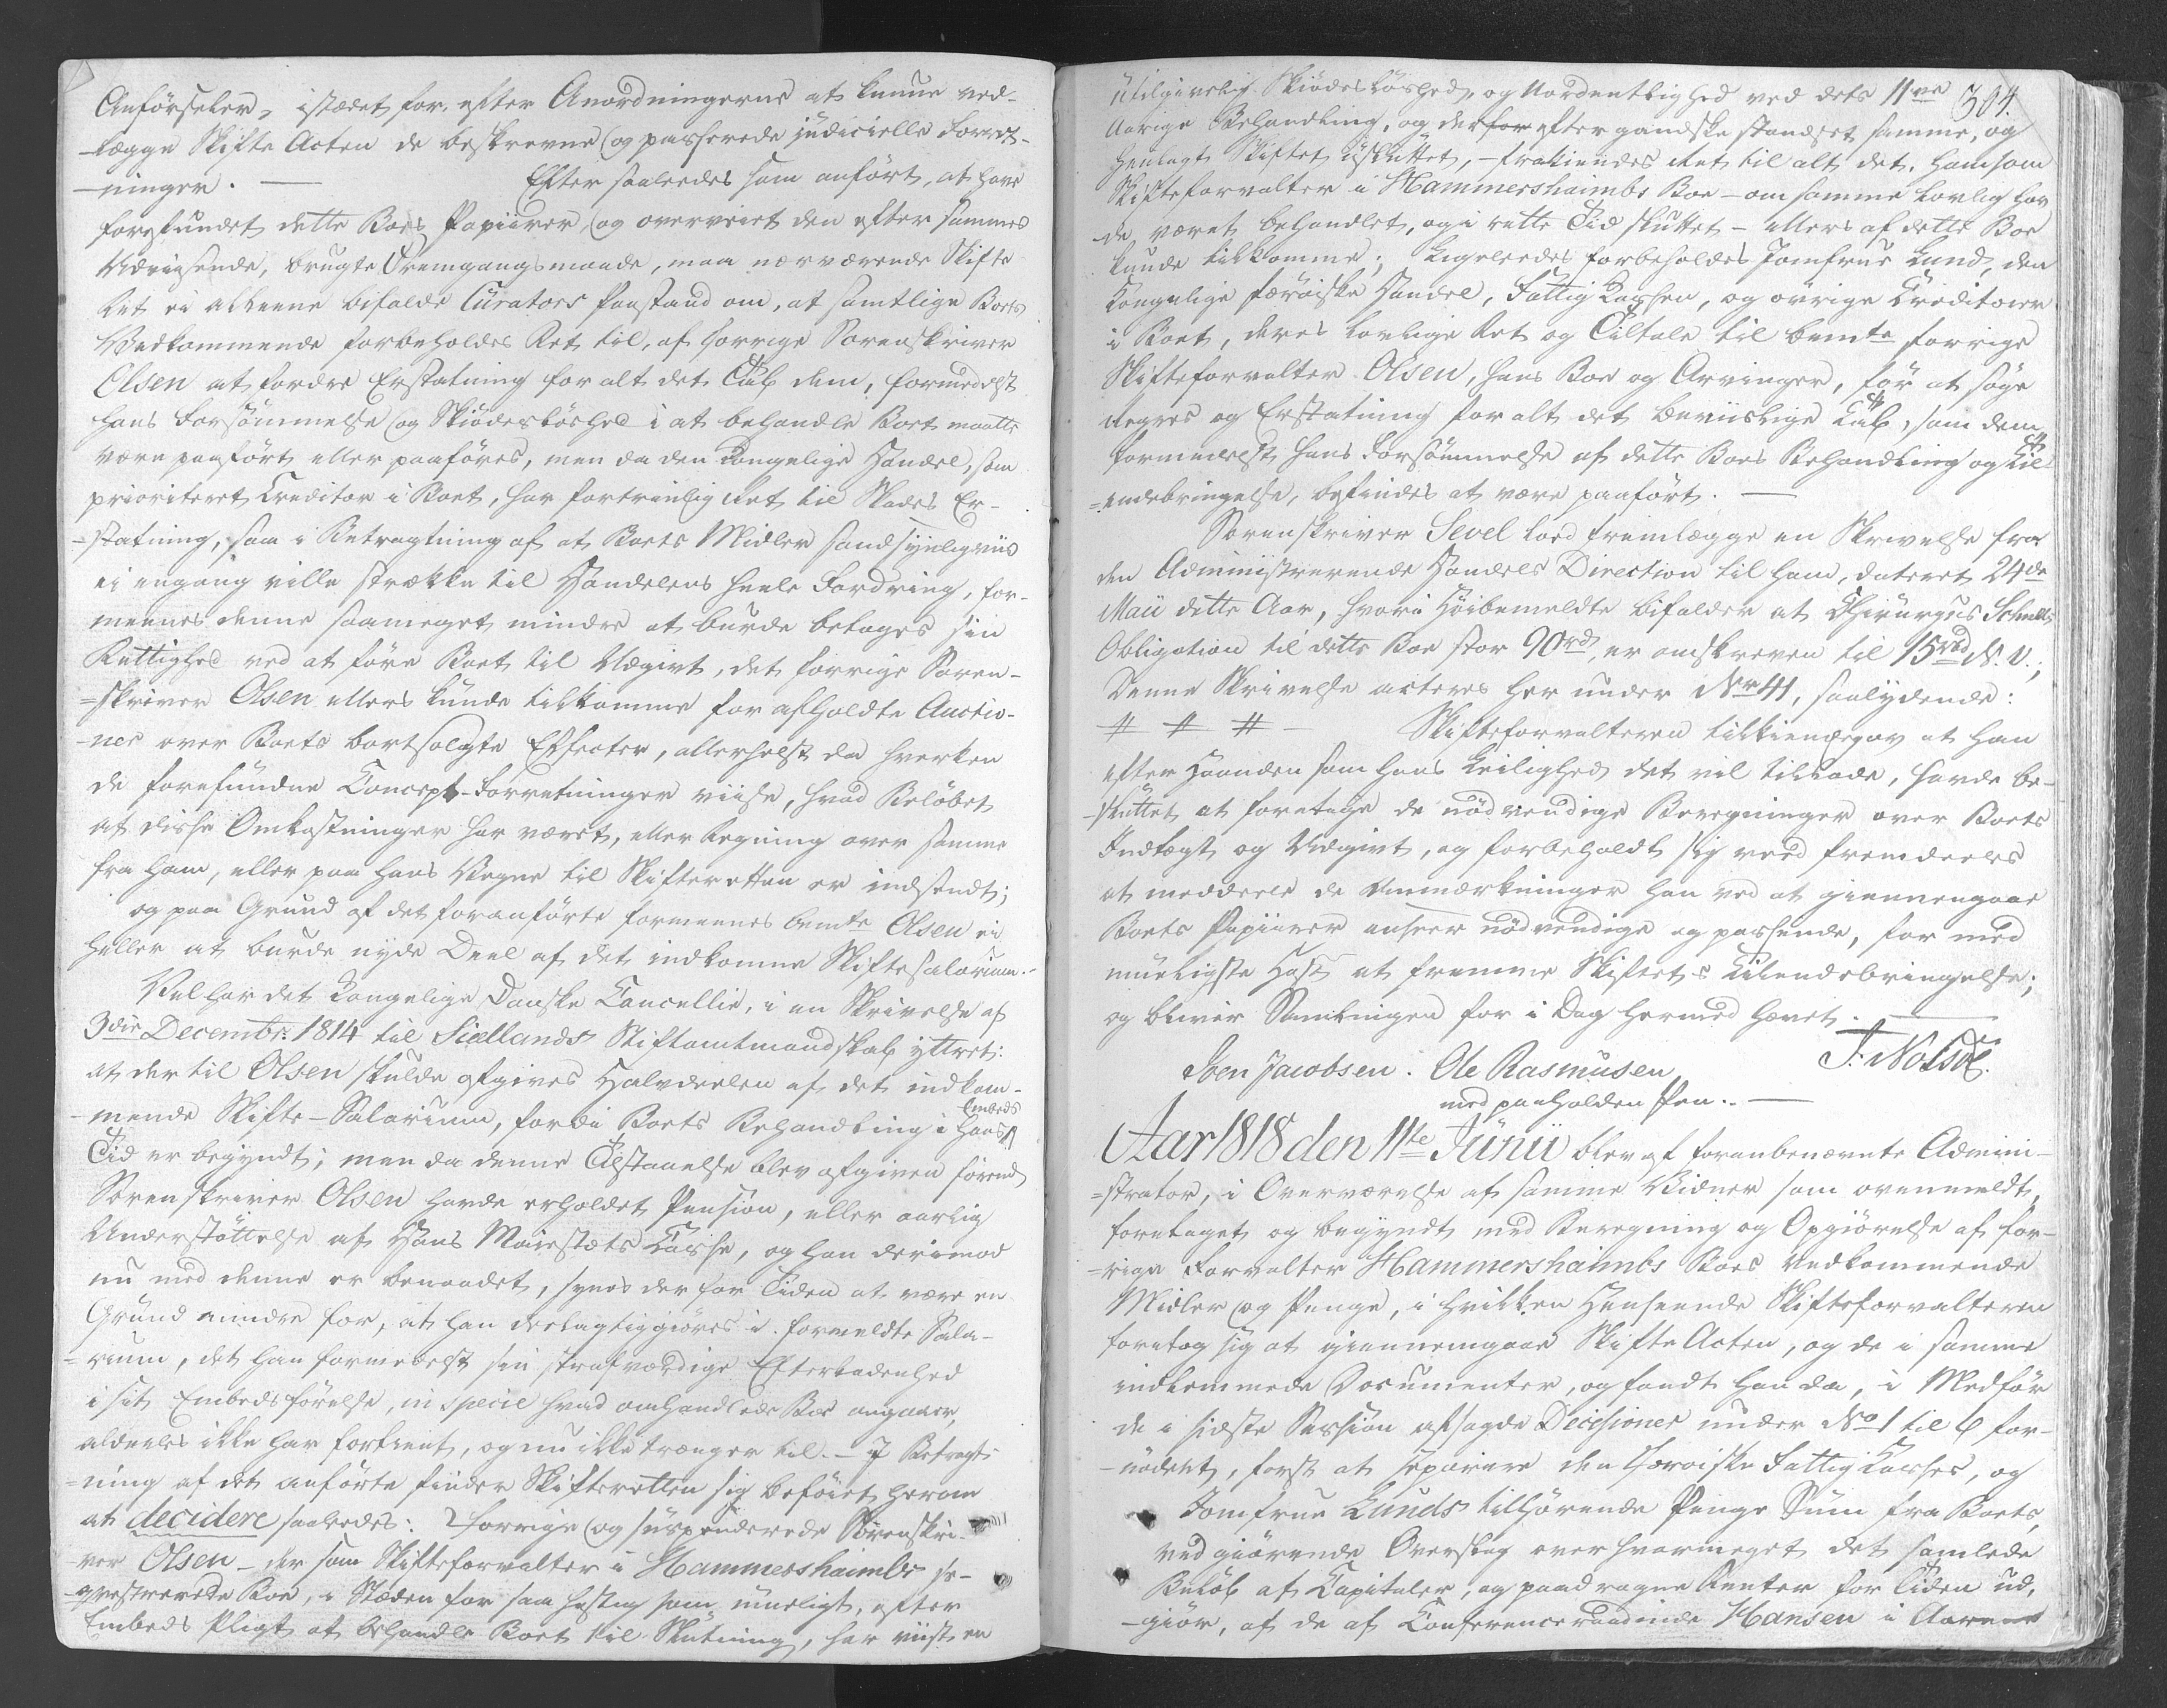 Anförseler, istædet for, efter Anordningerne at kunne ved-
-lægge Skifte Acten de beskrevne og passerede judicielle Forret-
-ninger. — Efter saaledes som anført, at have
forefundet dette Boes Papiirer, og overveiet den efter sammes
Udviisende, brugte Fremgangsmaade, maa nærværende Skifte
Ret ei alleene bifalde Curators Paastand om, at samtlige Boets
Vedkommende forbeholdes Ret til, af forrige Sorenskriver
Olsen at fordre Erstatning for alt det Tab dem, formedelst
hans Forsömmelse og Skiödeslöshed i at behandle Boet maatte
være paaført eller paaføres, men da den Kongelige Handel, som
prioriteret Creditor i Boet, har fortrinlig Ret til Skades Er-
-statning, saa i Betragtning af at Boets Midler sandsynligviis
ei engang ville strække til Handelens heele Fordring, for-
meenes denne saameget mindre at burde betages sin
Rettighed ved at føre Boet til Udgivt, det forrige Soren-
=skriver Olsen ellers kunde tilkomme for afholdte Auctio-
-ner over Boets bortsolgte Effecter, allerhelst da hverken
de forefundne Concept-Forretninger viise, hvad Beløbet
af disse Omkostninger har været, eller Regning over samme
fra ham, eller paa hans Vegne til Skifteretten er indsendt;
og paa Grund af det foranførte formeenes bemte Olsen ei
heller at burde nyde Deel af det indkomne Skiftesalarium.-
Vel har det Kongelige Danske Cancellie, i en Skrivelse af
3die Decembr: 1814 til Siellands Stiftamtmandskab yttret:
at der til Olsen skulde afgives Halvdeelen af det indkom-
-mende Skifte-Salarium, fordi Boets Behandling i hans Embeds
Tid er begyndt; men da denne Tilstaaelse blev afgiven førend
Sorenskriver Olsen havde erholdet Pension, eller aarlig
Understøttelse af Hans Majestæts Casse, og han derimod
nu med denne er benaadet, synes der for Tiden at være en
Grund mindre for, at han deelagtiggiøres i formeldte Sala-
=rium, det han formedelst sin strafværdige Efterladenhed
i sit Embedsførelse, in specie hvad omhandlede Boe angaaer,
aldeeles ikke har fortient, og nu ikke trænger til. — I Betragt-
=ning af det anførte finder Skifteretten sig beføiet herom
at decidere saaledes: Forrige og suspenderede Sorenskri-
-ver Olsen - der som Skifteforvalter i Hammershaimbs se-
-qvestrerede Boe, i Stæden for saa hastig som mueligt, efter
Embeds Pligt at behandle Boet til Slutning, har viist en
304.
utilgivelig Skiødesløshed, og Uordentlighed ved dets 11ve
Aarige Behandling, og derfor efter gandske standset samme, og
henlagt Skiftet uslüttet, - frakiendes Ret til alt det, ham som
Skifteforvalter i Hammershaimbs Boe - om samme lovlig hav
-de været behandlet, og i rette Tid sluttet - ellers af dette Boe
kunde tilkomme; Ligeleedes forbeholdes Jomfrue Lund, den
Kongelige færöiske Handel, Fattig Cassen, og övrige Creditorer
i Boet, deres lovlige Ret og Tiltale til bemte forrige
Skifteforvalter Olsen, hans Boe og Arvinger, for at söge
Regres og Erstatning for alt det beviislige Tab, som dem
formedelst hans Forsömmelse af dette Boes Behandling og Til
=endebringelse, befindes at være paaført. —
Sorenskriver Sevel lod fremlægge en Skrivelse fra
den Administrerende Handels Direction til ham, dateret 24de
Maii dette Aar, hvori Höibemeldte bifalder at Chirurgus
Obligation til dette Boe stor 90rd, er omskreven til 15rbd N. V.;
Denne Skrivelse acteres her under Nr 41, saalydende:
# # # — Skifteforvalteren tilkiendegav at han
efter Haanden som hans Leilighed det vil tillade, havde be-
-sluttet at foretage de nödvendige Beregninger over Boets
Indtægt og Udgivt, og forbeholdt sig ved fremdeeles
at meddeele de Anmærkninger han ved at giennemgaae
Boets Papiirer anseer nödvendige og passende, for med
mueligste Hast at fremme Skiftets Tilendebringelse;
og bliver Samlingen for i Dag hermed hævet. —
J: Nolsöe.
Sven Jacobsen. Ole Rasmusen
med paaholden Pen. —
Aar 1818 den 11te Junii blev af foranbenævnte Admini-
=strator, i Overværelse af samme Vidner som ovenmeldt,
foretaget og begyndt med Beregning og Opgiørelse af for-
=rige Forvalter Hammershaimbs Boes vedkommende
Midler og Penge, i hvilken Henseende Skifteforvalteren
foretog sig at giennemgaae Skifte Acten, og de i samme
indkommede Documenter, og fandt han da, i Medför
de i sidste Session afsagde Decisioner under No 1 til 6 for-
-nödent, først at separere den Færoiske Fattig Casses, og
Jomfrue Lunds tilhørende Penge Sum fra Boets,
ved giørende Overslag over hvormeget det samlede
Beløb af Capitaler, og paadragne Renter for Tiden ud,
-giör, af de af Conferenceraadinde Hansen i Aarene